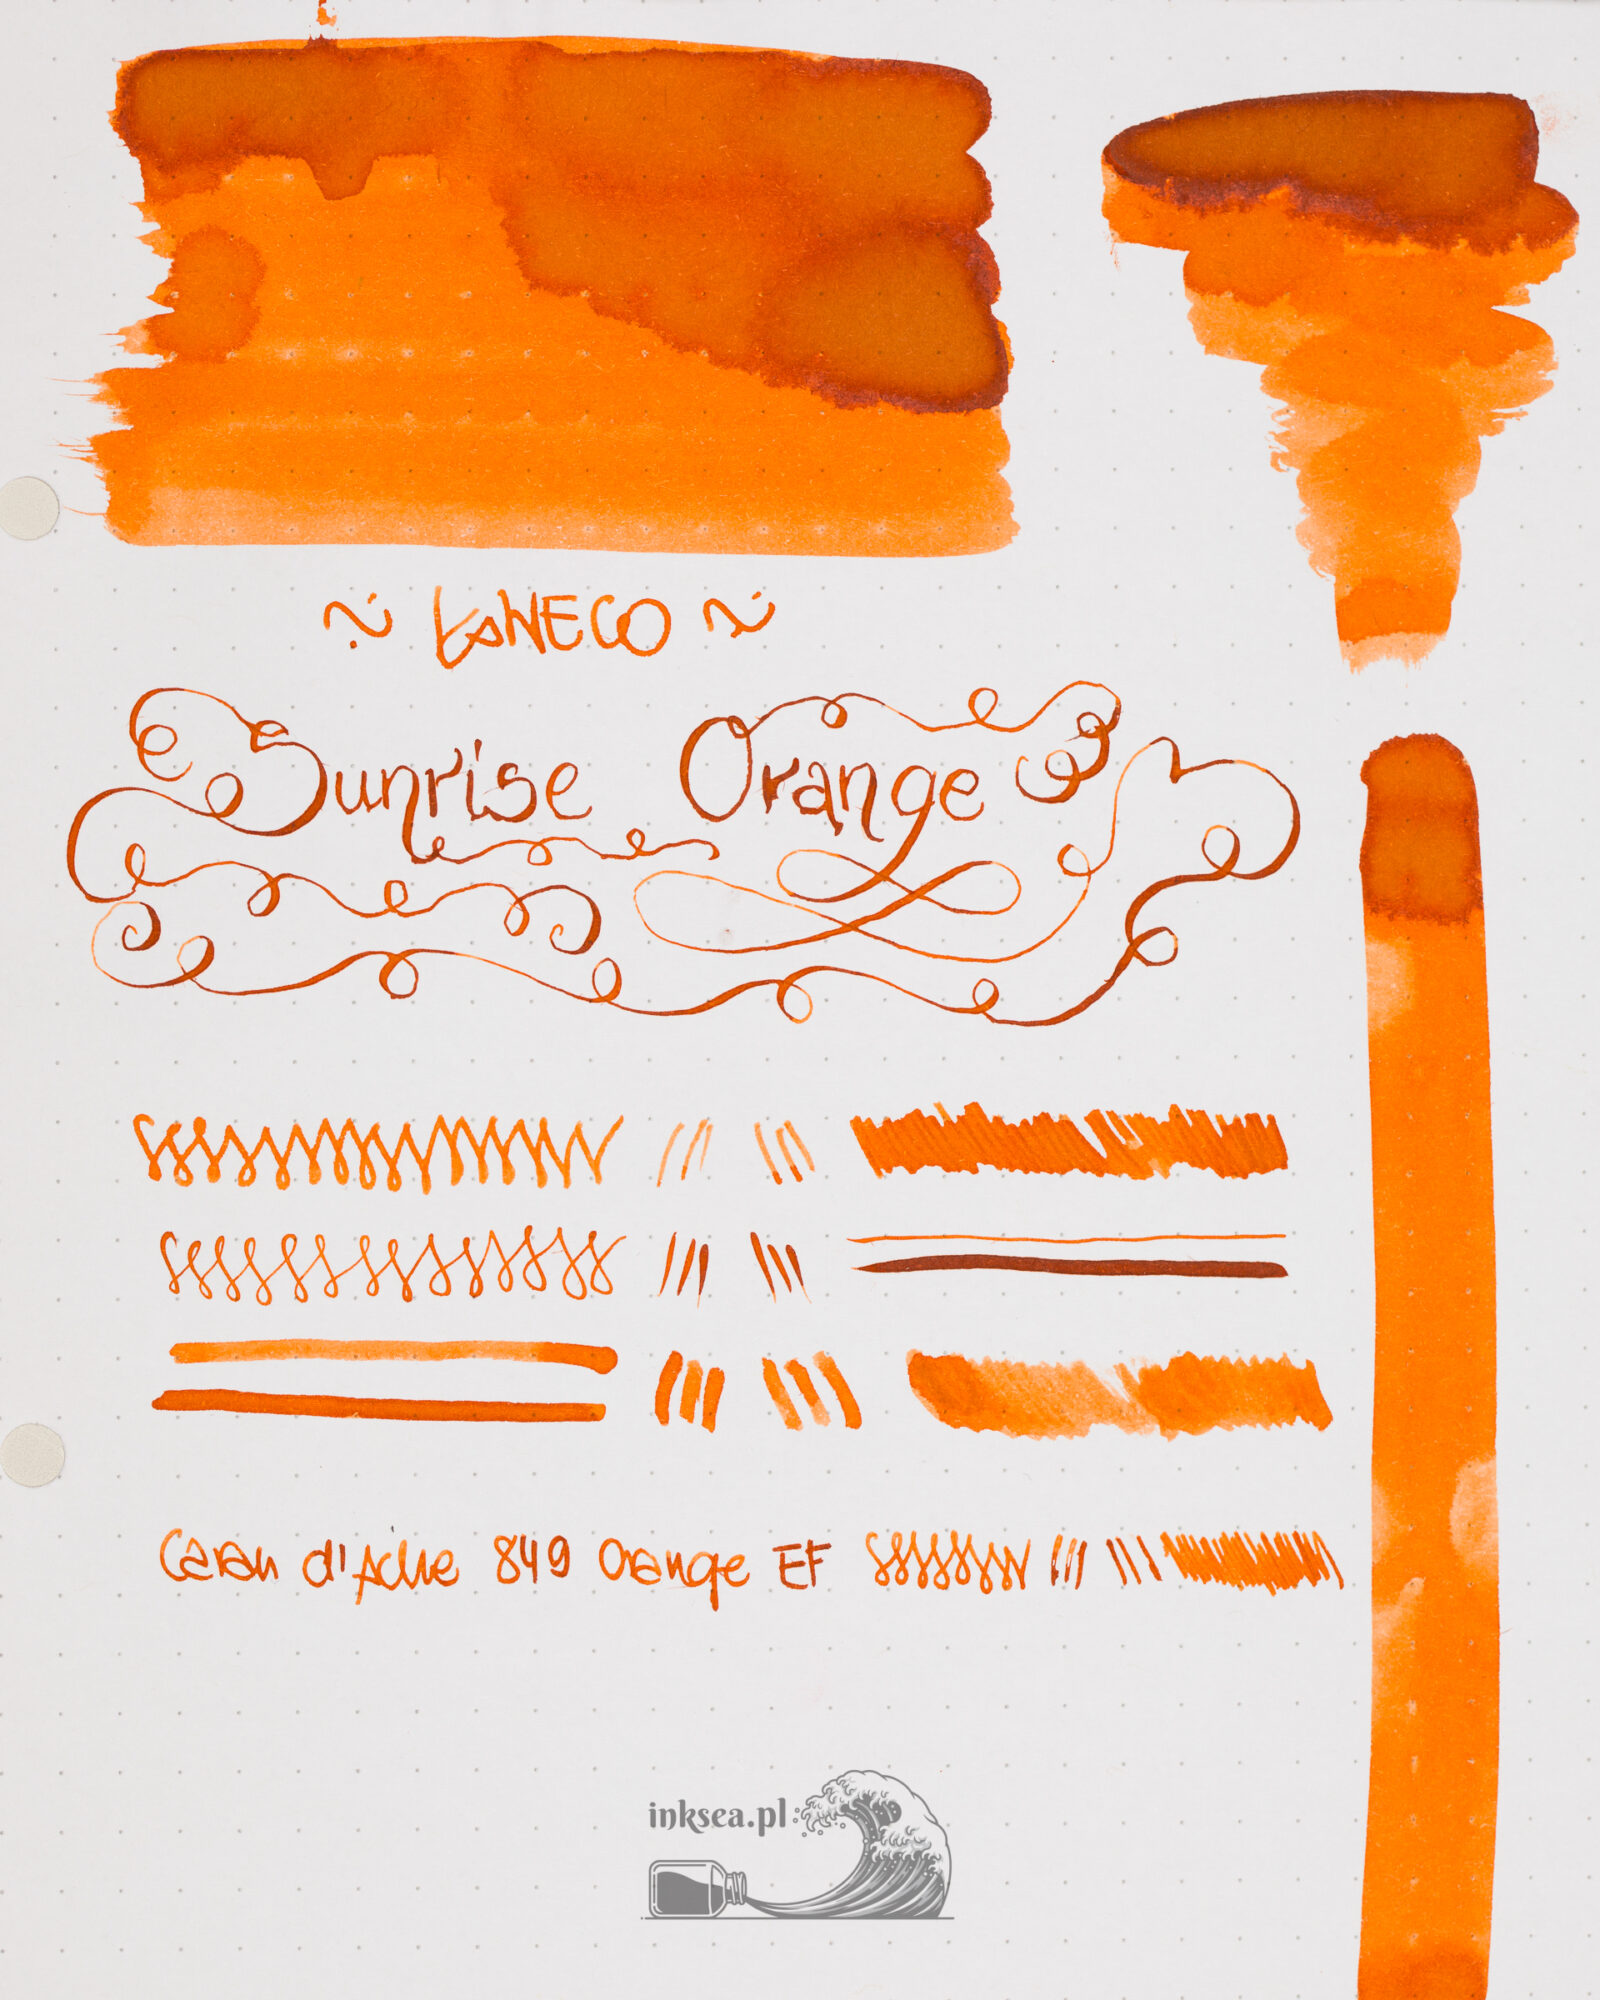 Sunrise Orange
Caran d'Ache 849 Orange EF
inksea.pl